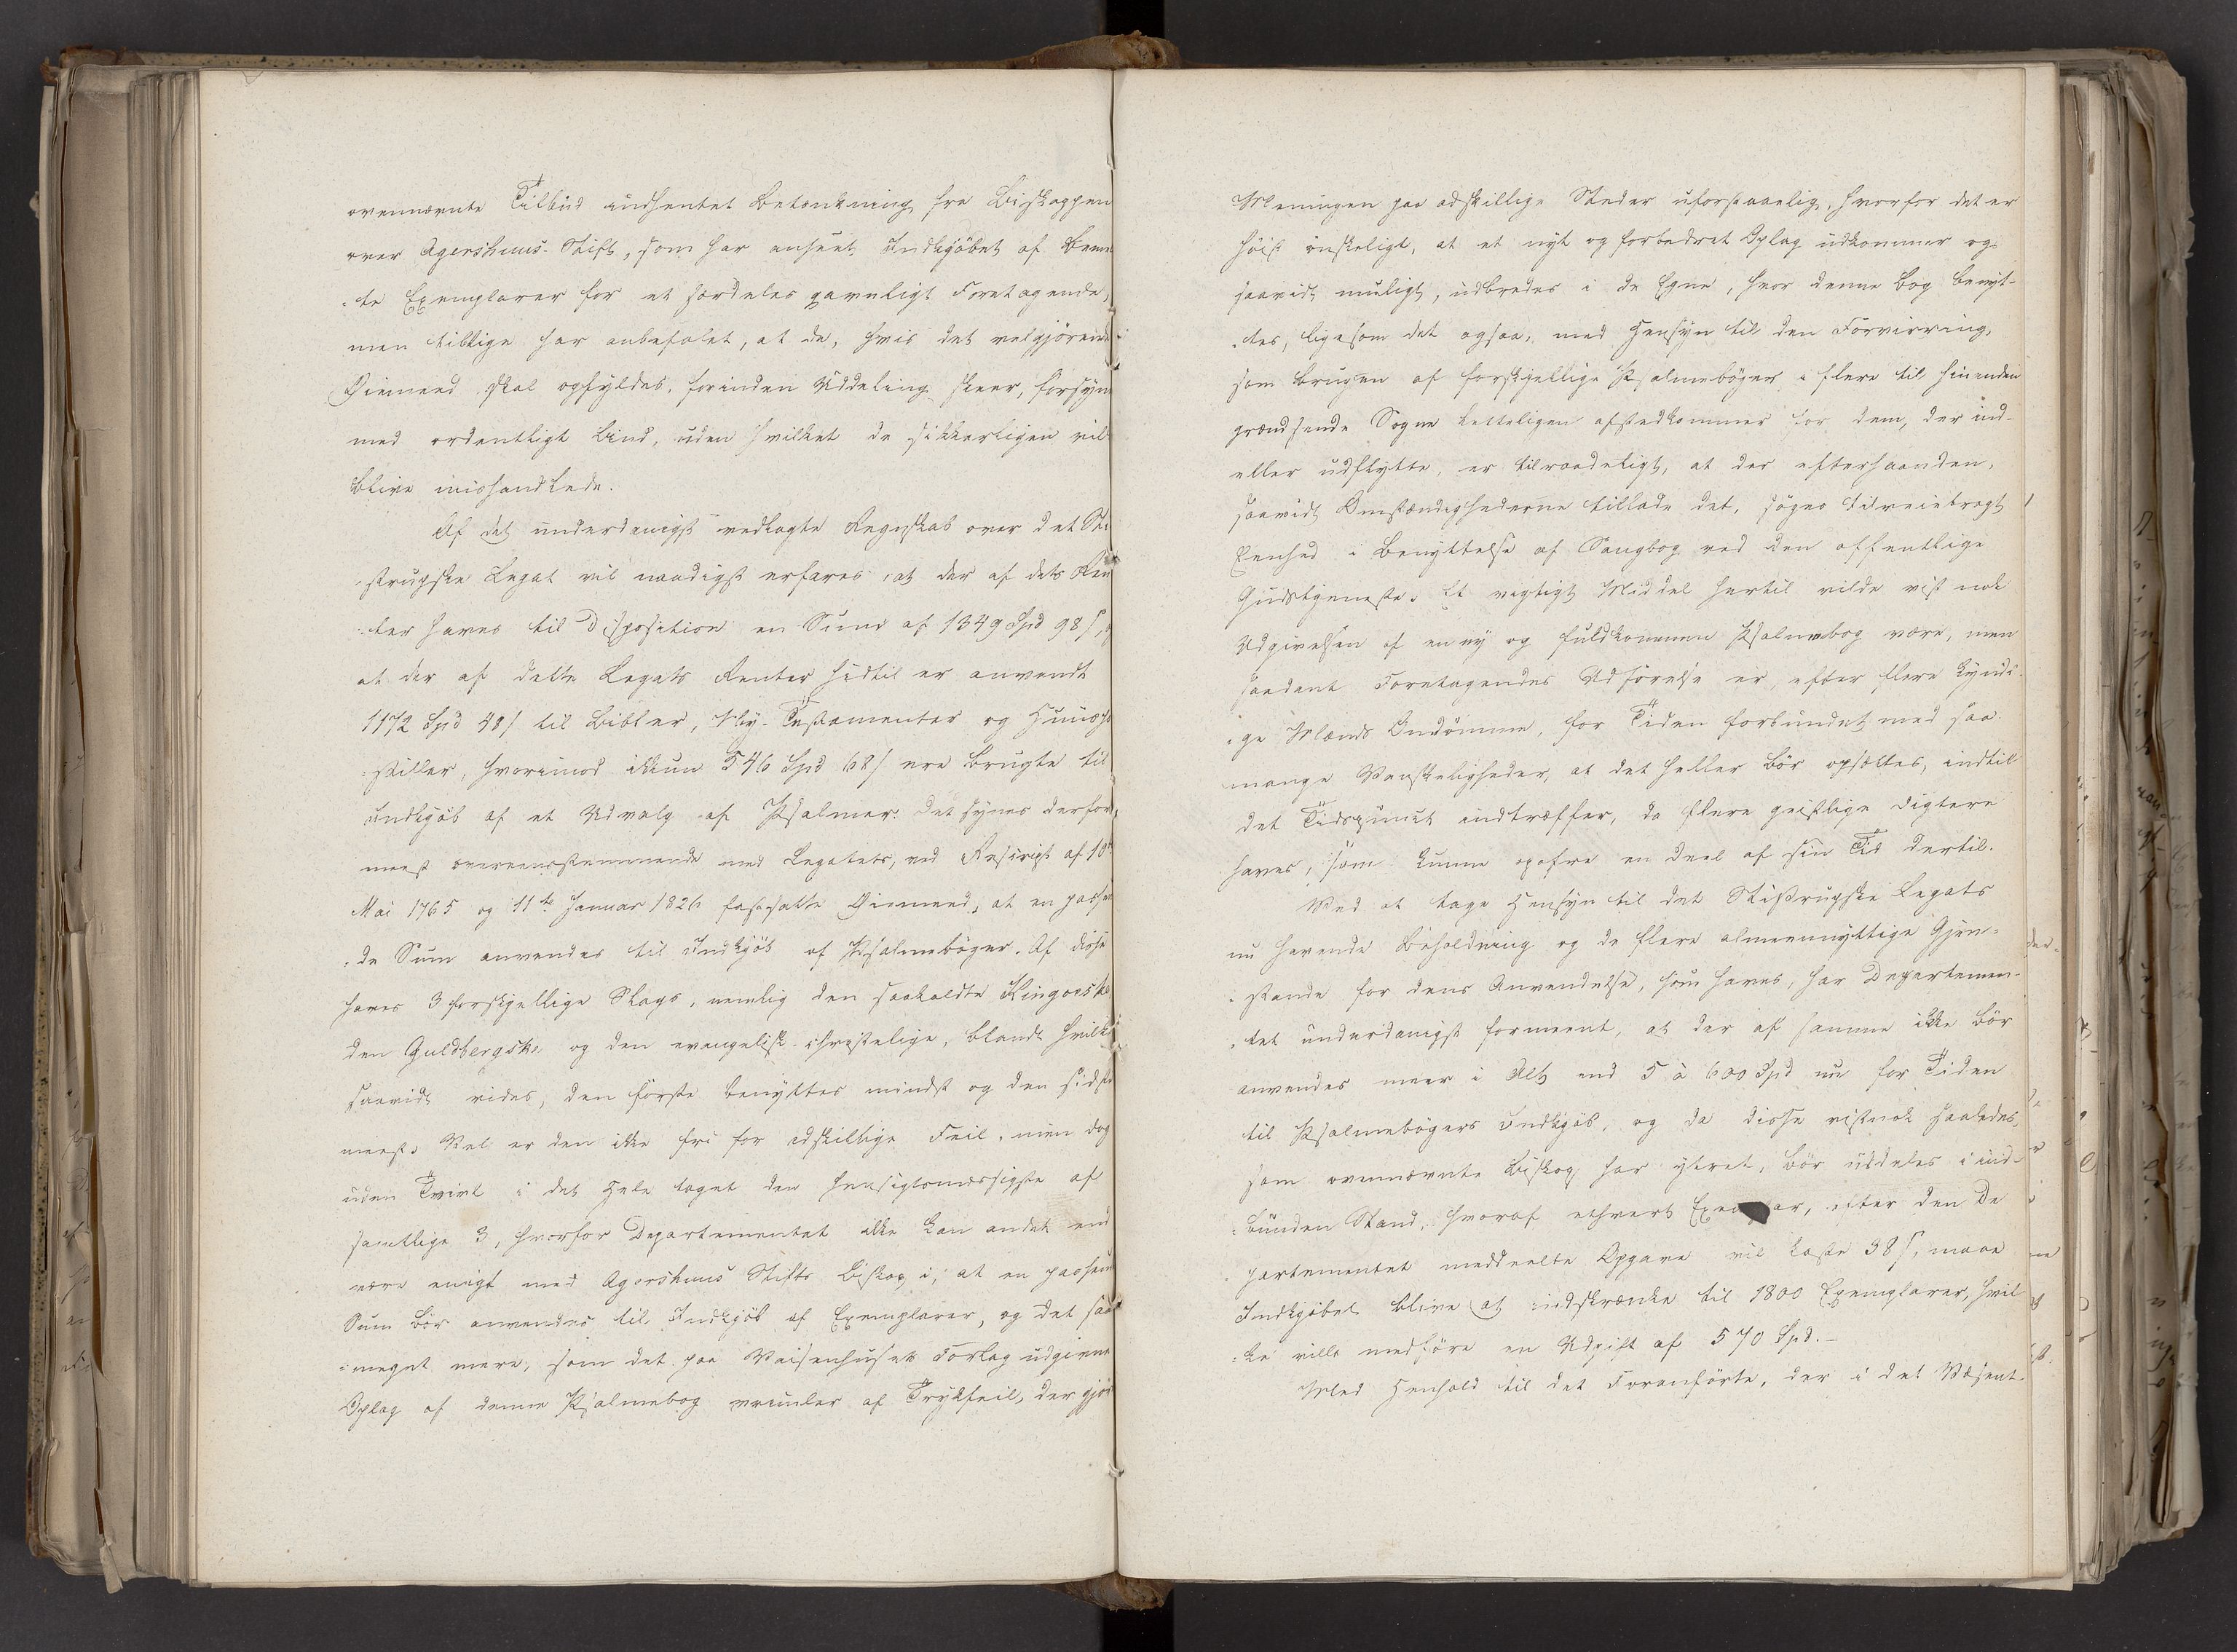 ovennævnte Tilbud indhentet Betænkning fra Biskoppen
over Agershuus Stift, som har anseet Indkjöbet af bem
te Exemplarer for et særdeles gavnligt Foretagende,
men tillige har anbefalet, at de, hvis det velgjörende
Öiemeed skal opfyldes, forinden Uddeling skeer, forsyne
med ordentligt Bind, uden hvilket de sikkerligen vil
blive mishandlede.
Af det underdanigst vedlagte Regnskab over det Sti
strupske Legat vil naadigst erfares, at der af dets Ren
ter haves til Disposition en Sum af 1349 Spd 98 s,
at der af dette Legats Renter hidtil er anvendt
1172 Spd 48 s til Bibler, Ny-Testamenter og Huuspo
stiller, hvorimod ikkun 546 Spd 68 s ere brugte til
Indkjöb af et Udvalg af Psalmer. Det synes derfor,
meest overeensstemmende med Legatets, ved Rescript af 10de
Mai 1765 og 11te Januar 1826 fastsatte Öiemeed, at en passen
de Sum anvendes til Indkjöb af Psalmebøger. Af disse
haves 3 forskjellige Slags, nemlig den saakaldte Kingoeske
den Guldbergske og den evangelisk-christelige, blandt hvilke
saavidt vides, den förste benyttes mindst og den sidste
meest. Vel er den ikke fri for adskillige Feil, men dog
uden Tvivl i det Hele taget den hensigtsmæssigste af
samtlige 3, hvorfor Departementet ikke kan andet end
være enigt med Agershuus Stifts Biskop i, at en passende
Sum bör anvendes til Indkjöb af Exemplarer, og det saa
meget mere, som det paa Vaisenhusets Forlag udgivne
Oplag af denne Psalmebog vrimler af Trykfeil, der gjör
Meningen paa adskillige Steder uforstaaelig, hvorfor det er
höist önskeligt, at et nyt og forbedret Oplag udkommer og
saavidt muligt, udbredes i de Egne, hvor denne Bog benyt-
tes, ligesom det ogsaa, med Hensyn til den Forvirring,
som Brugen af forskjellige Psalmebøger i flere til hinanden
grændsende Sogne letteligen afstedkommer for dem, der ind-
eller udflytte, er tilraadeligt, at der efterhaanden,
saavidt Omstændighederne tillade det, søges tilveiebragt
Eenhed i Benyttelse af Sangbog ved den offentlige
Gudstjeneste. Et vigtigt Middel hertil vilde vist nok
Udgivelsen af en ny og fuldkommen Psalmebog være, men
saadant Foretagendes Udförelse er, efter flere kyndi
ge Mænds Omdömme, for Tiden forbundet med saa
mange Vanskeligheder, at det heller bör opsættes, indtil
det Tidspunct indtræffer, da flere geistlige Digtere
haves, som kunne opofre en Deel af sin Tid dertil.
Ved at tage Hensyn til det Stistrupske Legats
nu havende Beholdning og de flere almeennyttige Gjen-
stande for dens Anvendelse, som haves, har Departemen-
tet underdanigst formeent, at der af samme ikke bör
anvendes meer i Alt end 5 à 600 Spd nu for Tiden
til Psalmebögers Indkjöb, og da disse vistnok saaledes,
som ovennævnte Biskop har yttret, bör uddeles i ind-
bunden Stand, hvoraf ethvert Exemplar, efter den De
partementet meddeelte Opgave vil koste 38 s, maae
Indkjöbet blive at indskrænke til 1800 Exemplarer, hvil
ke ville medföre en Udgift af 570 Spd.-
Med Henhold til det Foranförte, der i det Væsent-